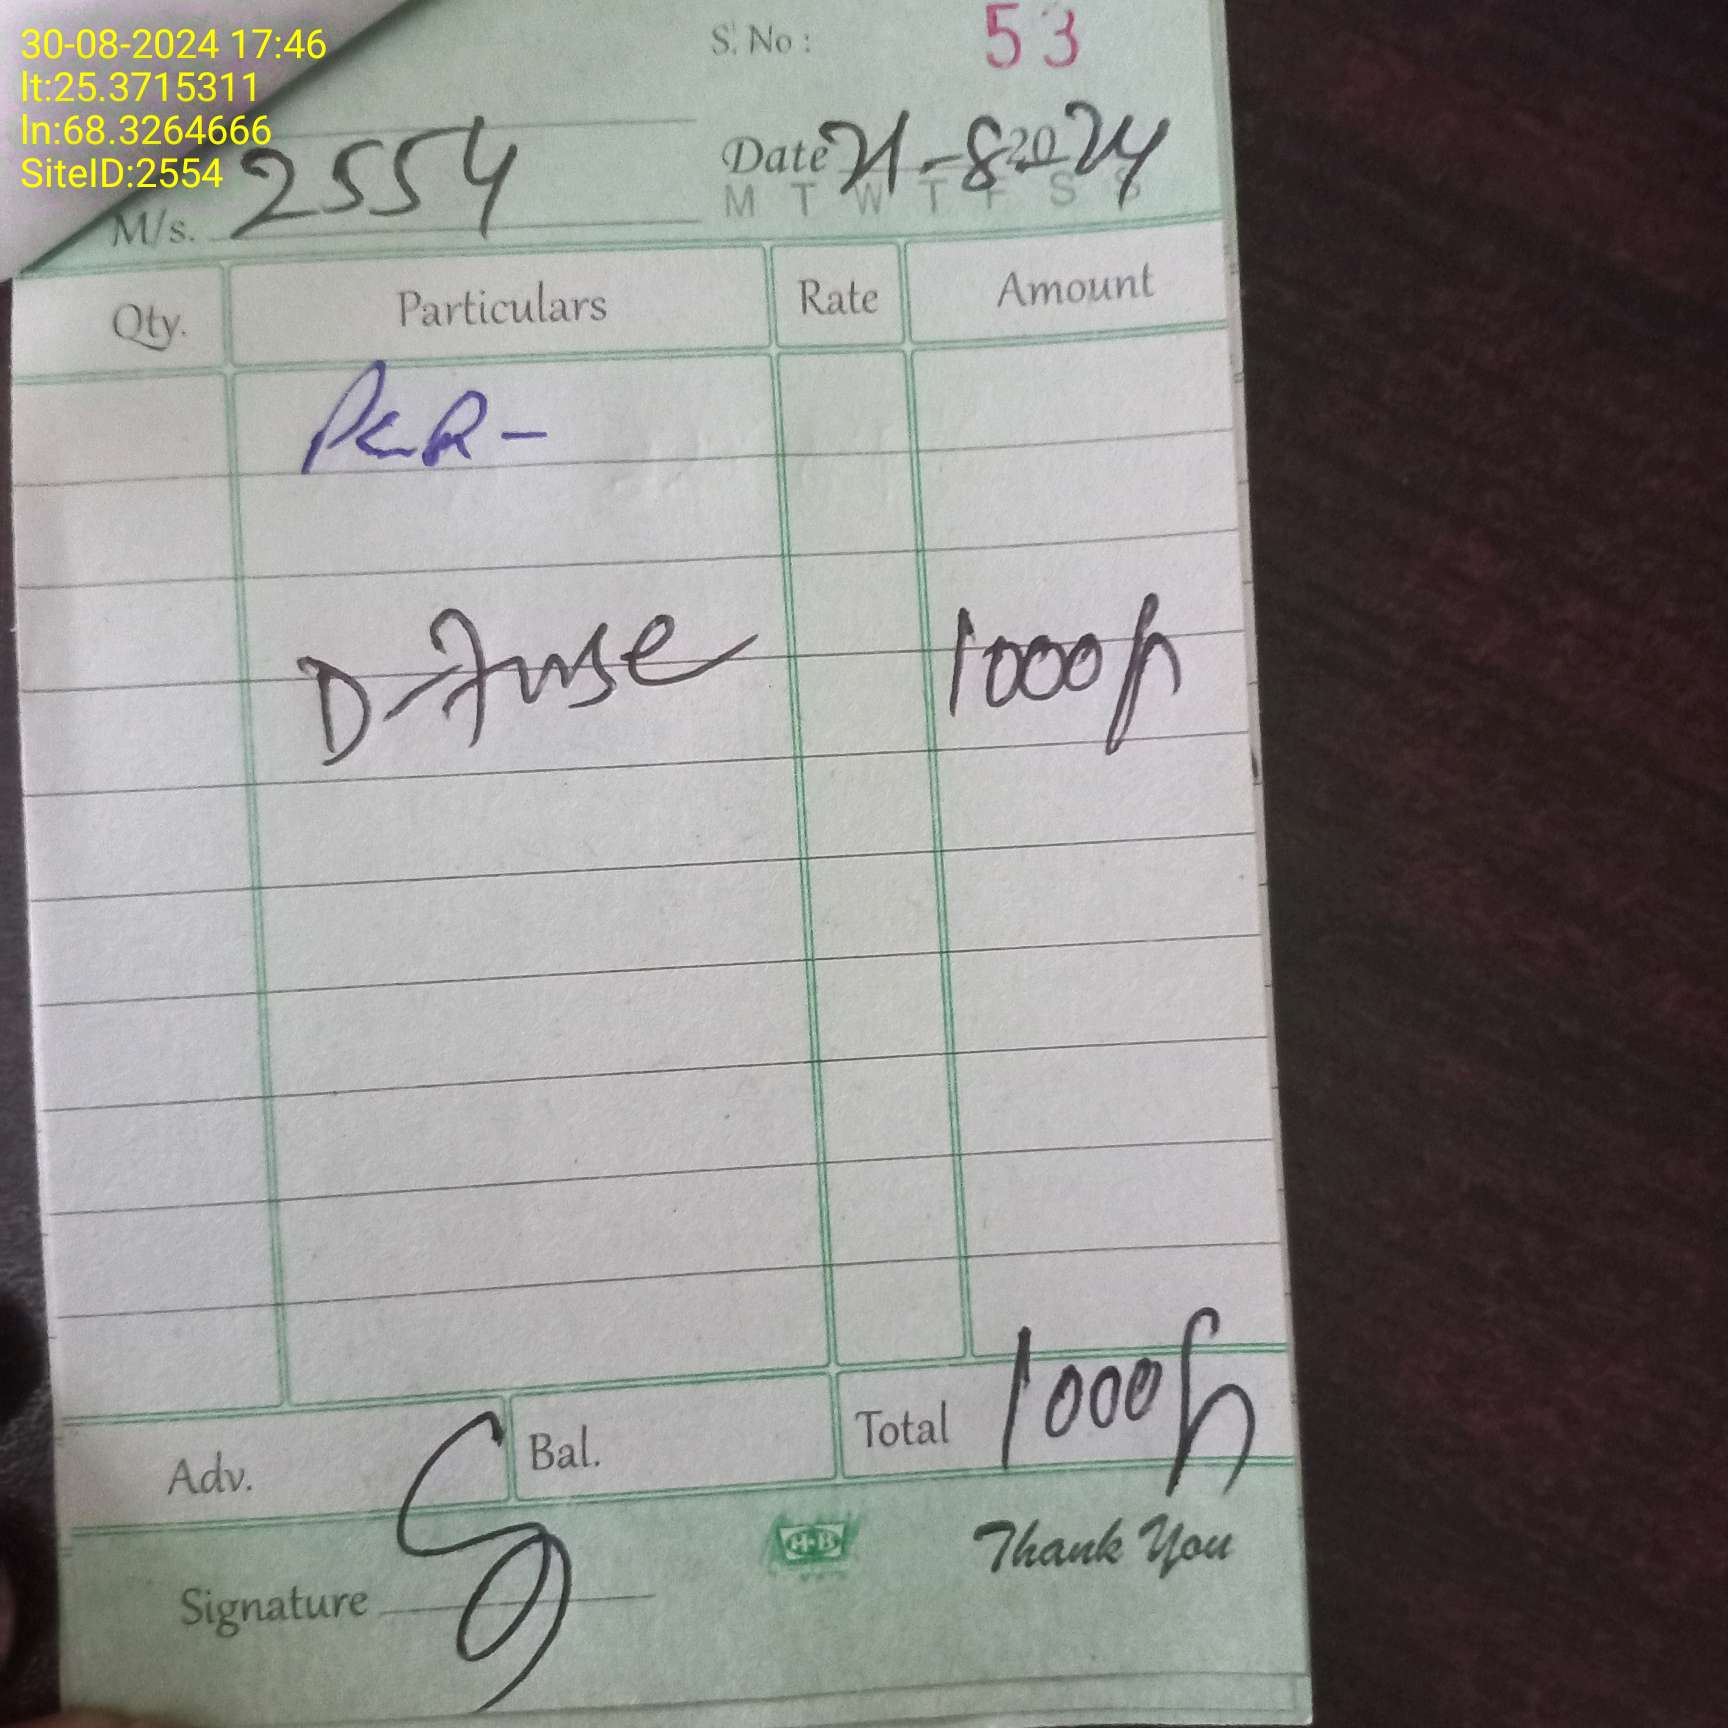 30-08-2024 17:46
lt:25.3715311
ln:68.3264666
SiteID:2554
S. No : 53
M/s. 2554
Date 21-8-2024
M T W T F S S
Qty. Particulars Rate Amount
D-Fuse 1000/-
Adv. Bal. Total 1000/-
H-B
Signature
Thank You